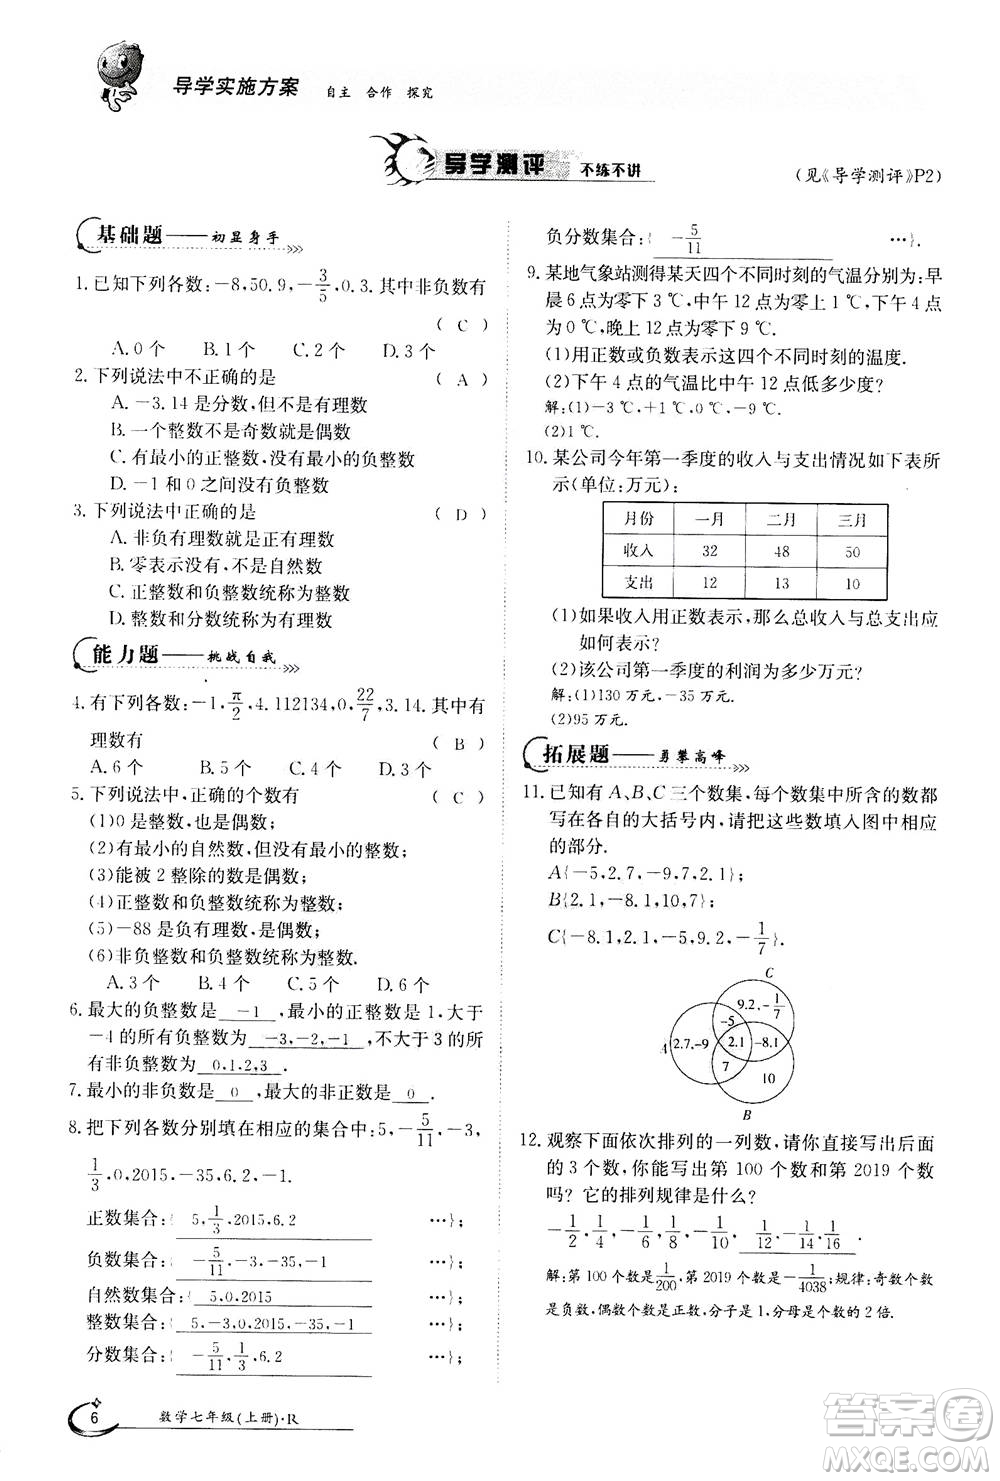 导学实施方案 自主 合作 探究
导学测评 不练不讲
(见《导学测评》P2)
基础题——初显身手
1. 已知下列各数: -8,50.9, -3/5, 0.3. 中非负数有
( C )
A.0个 B.1个 C.2个 D.3个
2. 下列说法中不正确的是 ( A )
A. -3.14是分数,但不是有理数
B. 一个整数不是奇数就是偶数
C. 有最小的正整数,没有最小的整数
D. -1和0之间没有负整数
3. 下列说法中正确的是 ( D )
A. 非负有理数就是正有理数
B. 零表示没有,不是自然数
C. 正整数和负整数统称为整数
D. 整数和分数统称为有理数
能力题——挑战自我
4. 有下列各数: -1, π/2, 4.112134, 0, 22/7, 3.14. 其中有
理数有 ( B )
A.6个 B.5个 C.4个 D.3个
5. 下列说法中,正确的个数有 ( C )
(1)0是整数,也是偶数;
(2)有最小的自然数,但没有最小的整数;
(3)能被2整除的数是偶数;
(4)正整数和负整数统称为整数;
(5)-88是负有理数,是偶数;
(6)非负整数和负整数统称为整数.
A.3个 B.4个 C.5个 D.6个
6. 最大的负整数是 -1 ,最小的正整数是1,大于
-4的所有负整数为 -3,-2,-1 ,不大于3的所
有非负整数为 0,1,2,3 .
7. 最小的非负数是 0 ,最大的非正数是 0 .
8. 把下列各数分别填在相应的集合中:5, -5/11, -3,
1/3, 0,2015, -35,6.2, -1.
正数集合:{ 5, 1/3, 2015,6.2 …};
负数集合:{ -5/11, -3, -35, -1 …};
自然数集合:{ 5,0,2015 …};
整数集合:{ 5, -3,0,2015, -35, -1 …};
分数集合:{ -5/11, 1/3, 6.2 …};
6 数学七年级(上册)·R
负分数集合:{ -5/11 …}.
9. 某地气象站测得某天四个不同时刻的气温分别为:早
晨6点为零下3℃,中午12点为零上1℃,下午4点
为0℃,晚上12点为零下9℃.
(1)用正数或负数表示这四个不同时刻的温度.
(2)下午4点的气温比中午12点低多少度?
解:(1)-3℃,+1℃,0℃,-9℃.
(2)1℃.
10. 某公司今年第一季度的收入与支出情况如下表所
示(单位:万元):
月份 一月 二月 三月
收入 32 48 50
支出 12 13 10
(1)如果收入用正数表示,那么总收入与总支出应
如何表示?
(2)该公司第一季度的利润为多少万元?
解:(1)130万元,-35万元.
(2)95万元.
拓展题——勇攀高峰
11. 已知有A、B、C三个数集,每个数集中所含的数都
写在各自的大括号内,请把这些数填入图中相应
的部分.
A{-5,2.7,-9,7,2.1};
B{2.1,-8.1,10,7};
C{-8.1,2.1,-5,9.2, -1/7}.
C
9.2, -1/7
-5
A 2.7,-9 2.1 -8.1
7
10
B
12. 观察下面依次排列的一列数,请你直接写出后面
的3个数,你能写出第100个数和第2019个数
吗? 它的排列规律是什么?
-1/2, 1/4, -1/6, 1/8, -1/10, 1/12, -1/14, 1/16 .
解:第100个数是1/200,第2019个数是-1/4038;规律:奇数个数
是负数,偶数个数是正数,分子是1,分母是个数的2倍.
答案卷
MXQE.COM